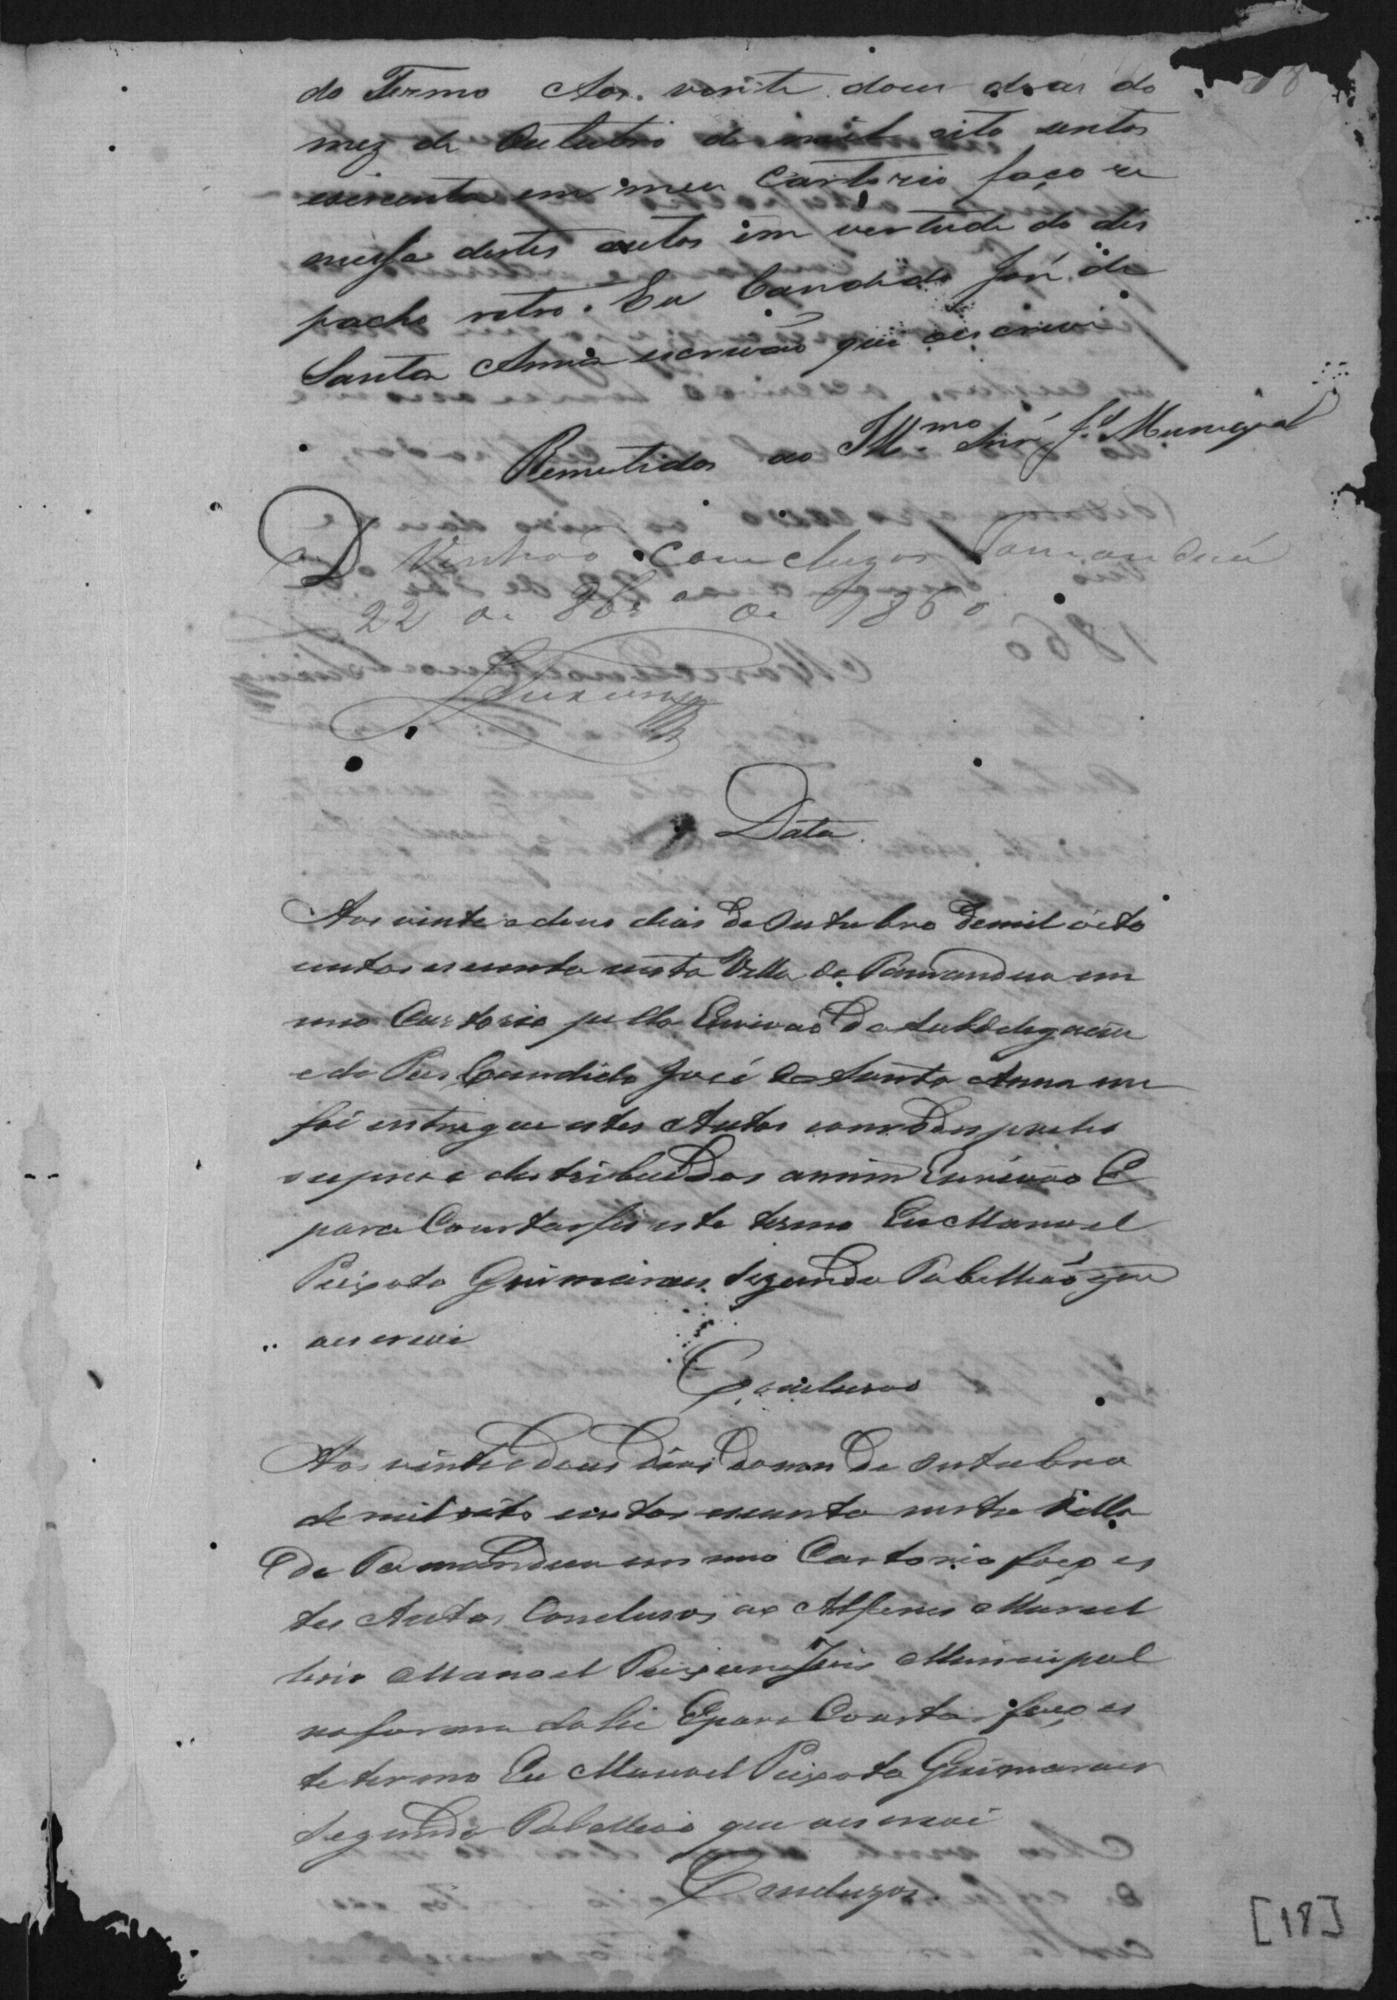 do Termo Aos vinte dous dias do
mez de Outubro de mil oito sentos
secenta em meu Cartorio faço re
messa destes autos em vertude do des
pacho retro. Eu Candido José de
Santa Anna escrivão que oescrevi
Remetidos ao Ill.mo Snr̃ J.s Municipal
D Venhão concluzos Tamanduá
22 de 8br.o de 1860
Data
Aos vinte e dous dias de Outubro de mil oito
centos secenta nesta Villa de Tamandua em
meo Cartorio pello Escrivaõ da Subdelegacia
e do Pas Candido José de Santa Anna me
foi entregue estes Autos com o Despacho
supra e destribuidos amim Escrivão E
para Constar fis este termo Eu Manoel
Peixoto Guimaraes segundo Tabelliaõ que
oescrevi
Concluzos
Aos vinte e dous dias do mes de Outubro
de mil oito centos secenta nesta Villa
de Tamandua em meo Cartorio faço es
tes Autos Concluzos ao Alferes Marcel
lino Manoel Juis Municipal
na forma da Lei E para Constar faço es
te termo Eu Manoel Peixoto Guimaraes
segundo Tabelliaõ que oescrevi
Concluzos.
[18]